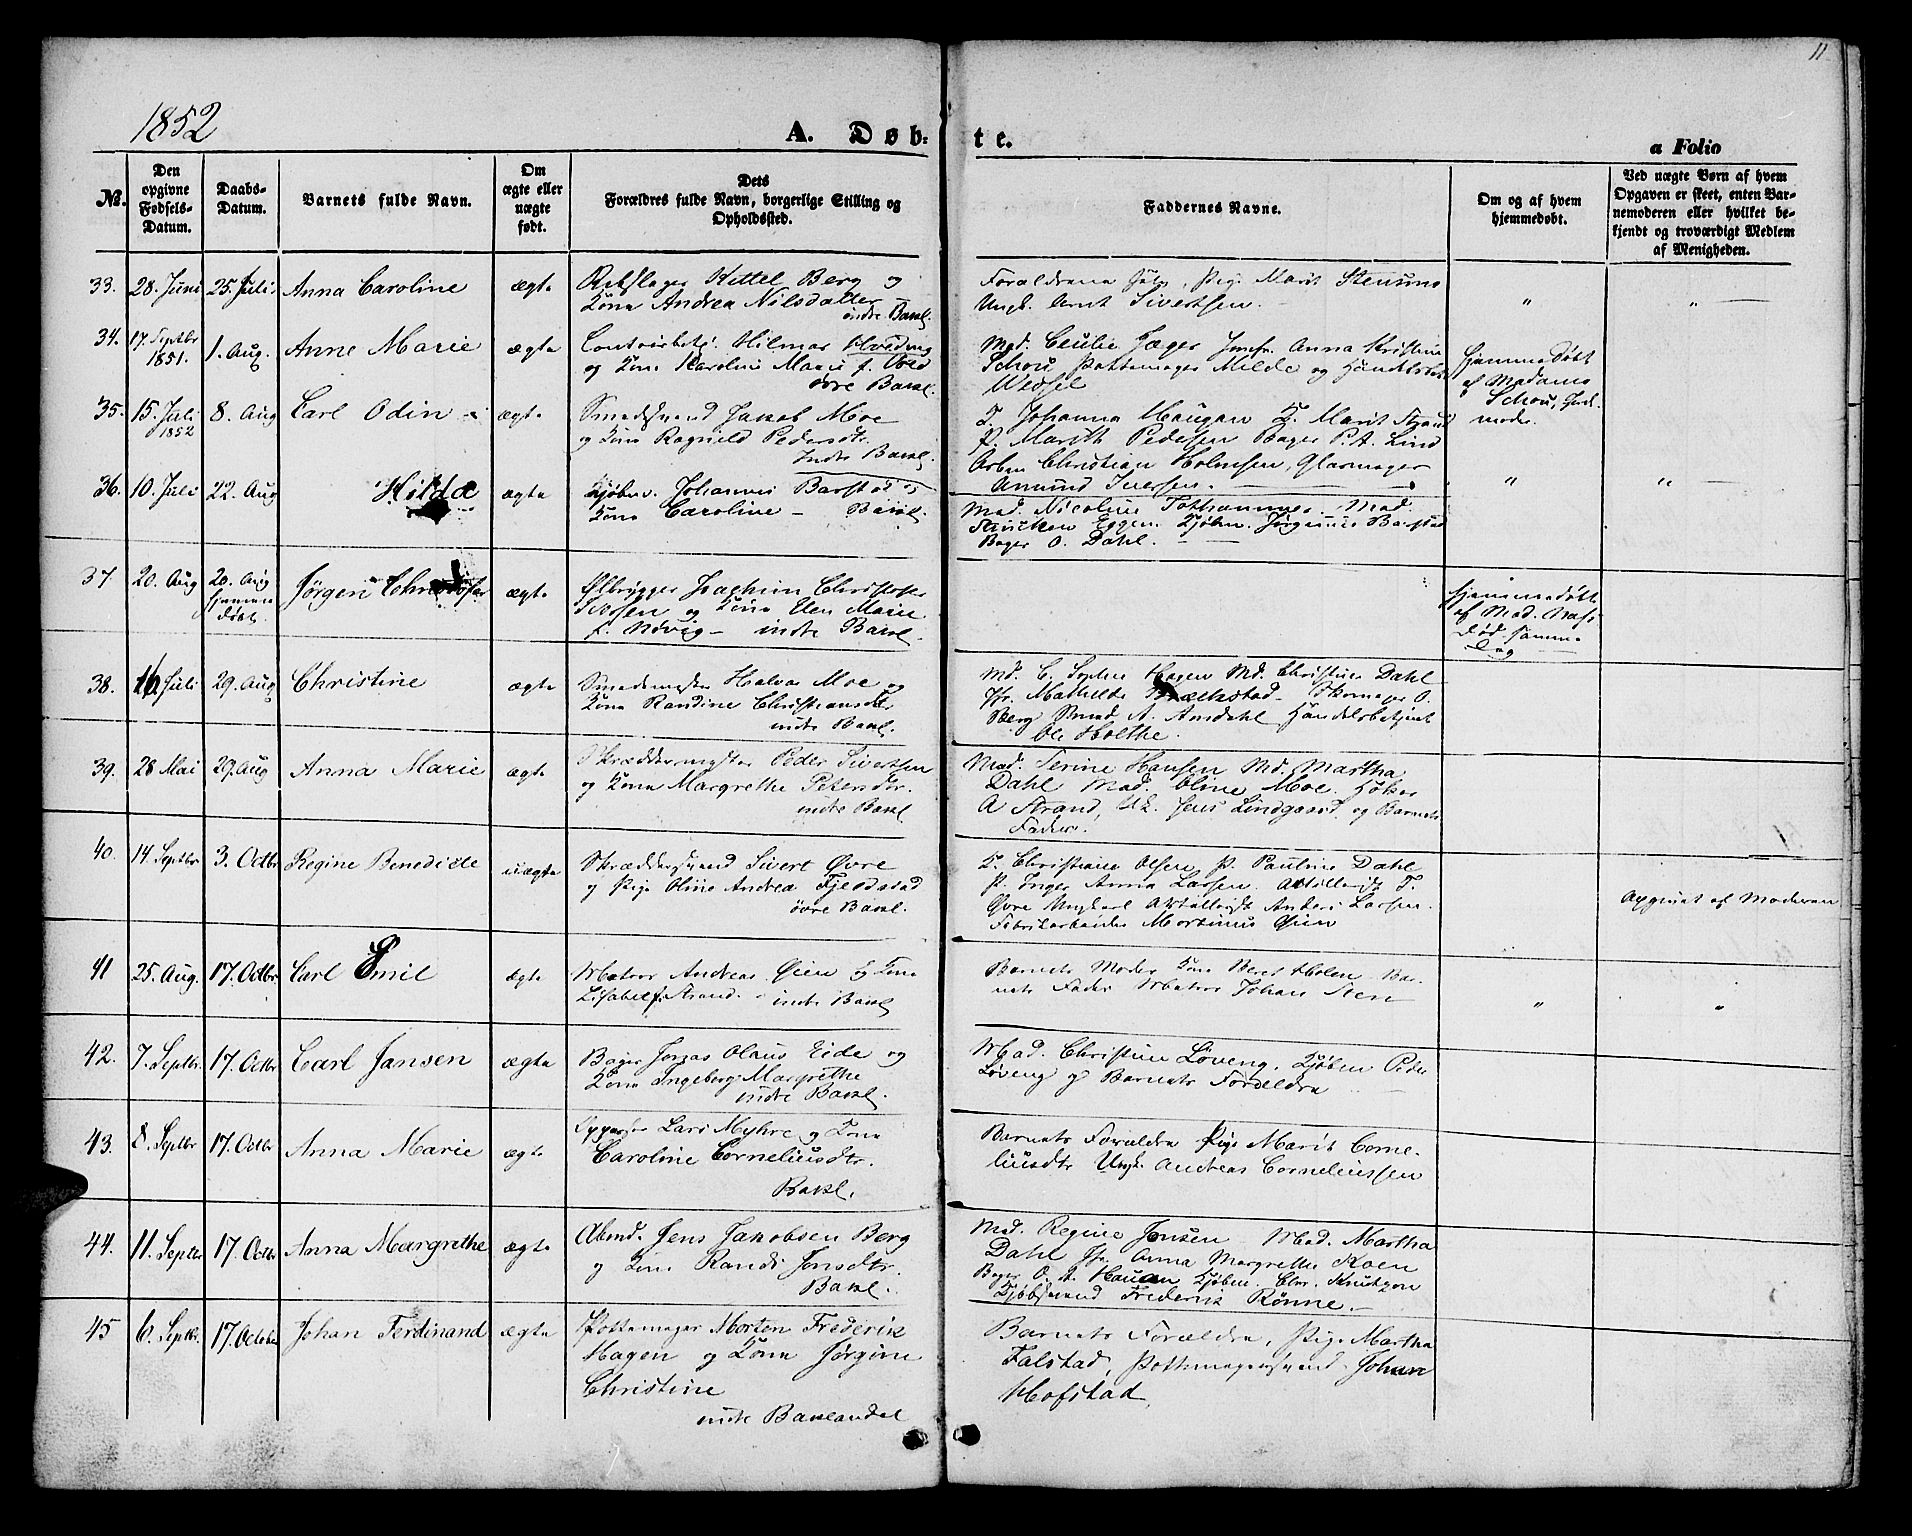 11
1852
A. Døb-
te.
a Folio
No.
Den opgivne Fødsels-Datum.
Daabs-Datum.
Barnets fulde Navn.
Om ægte eller uægte født.
Dets Forældres fulde Navn, borgerlige Stilling og Opholdssted.
Faddernes Navne.
Om og af hvem hjemmedøbt.
Ved uægte Børn af hvem Opgaven er skeet, enten Barnemoderen eller hvilket bekjendt og troværdigt Medlem af Menigheden.
33. 28. Juni 25. Juli Anna Caroline ægte Kittel Berg og
Kone Andrea Nilsdatter
indre Bakl.
Forældrene Pige Marit
Ungk. Arnt Sivertsen.
34. 17. Septbr 1851. 1. Aug. Anne Marie ægte Hilmar
og Kone Karoline Marie f.
øvre Bakl.
Mad. Cecilie Jæger Jomfr. Anna Kristine
Schou Pottemager Milde og
Wedsel
Hjemmedøbt
af Madame
Schou,
moder.
35. 15. Juli 1852 8. Aug Carl Odin ægte Smedsvend Jakob Moe
og Kone Ragnild Pedersdtr.
Indre Bakl.
K. Johanna Haugan K. Marit
P. Marith Pedersen Bager P. A. Lind
Arb. Christian Holmsen, Glasmager
Amund Iversen.
36. 10. Juli 22. Aug Hilda ægte Kjøbm. Johannes og
Kone Caroline - Bakl.
Mad. Nicoline Mad.
Eggen. Kjøbm. Jørginus
Bager O. Dahl.
37. 20. Aug 20. Aug Hjemmedøbt Jørgen Christofer ægte Ølbrygger Joachim Christofer
Iversen og Kone Elen Marie
f. Nøvig - indre Bakl.
Hjemmedøbt
af Mad.
Død samme
Dag
38. 16 Juli 29. Aug Christine ægte Smedemester Halvor Moe og
Kone Randine Christiansdtr
indre Bakl.
Md. C. Sophie Hagen Md. Christine Dahl
Jfr. Mathilde Brækstad - Skomager O.
Berg A. Amdahl Handelsbetjent
Ole Holthe.
39. 28 Mai 29. Aug Anna Marie ægte Skræddermester Peder Sivertsen
og Kone Margrethe Petersdtr.
indre Bakl
Mad. Serine Hansen Md. Martha
Dahl Mad. Oline Moe. Høker
A Strand, Uk. Jens og Barnets
Fader.
40. 14. Septbr 3. Octbr Regine Benedicte uægte Skræddersvend Sivert Øvre
og Pige Oline Andrea Fjeldstad
øvre Bakl.
K. Christiane Olsen P. Pauline Dahl
P. Inger Anna Larsen. Artillerist T.
Øvre Ungkarl Artillerist Anders Larsen.
Fabrikarbeider Mortinus Øien
Opgivet af Moderen
41 25. Aug. 17. Octbr Carl Emil ægte Matros Andreas Øien og Kone
Lisabet f. Strand. - indre Bakl
Barnets Moder Kone Beret Holen Bar-
nets Fader Matros Johan Sten
42. 7. Septbr. 17. Octbr Carl Jansen ægte Bager Olaus Eide og
Kone Ingeborg Margrethe
indre Bakl.
Mad. Christine Løveng, Kjøbm Peder
Løveng og Barnets Forældre
43. 8. Septbr 17. Octbr Anna Marie ægte Lars Myhre og Kone
Caroline Corneliusdtr.
Bakl.
Barnets Forældre Pige Marit Corne-
liusdtr Ungk. Andreas Corneliussen
44. 11. Septbr 17. Octbr Anna Margrethe ægte Jens Jakobsen Berg
og Kone Randi Jonsdtr.
Bakl.
Mad. Regine Jensen Mad. Martha
Dahl Jfr. Anna Margrethe Koen
Bager O. A. Hauan Kjøbm. Chr. Knutzon
Frederik Rønne.
45 6. Septbr. 17. October Johan Ferdinand ægte Pottemager Morten Frederik
Hagen og Kone Jørgine
Christine
indre Baklandet
Barnets Forældre, Pige Martha
Falstad, Pottemagersvend Johan
Hofstad.